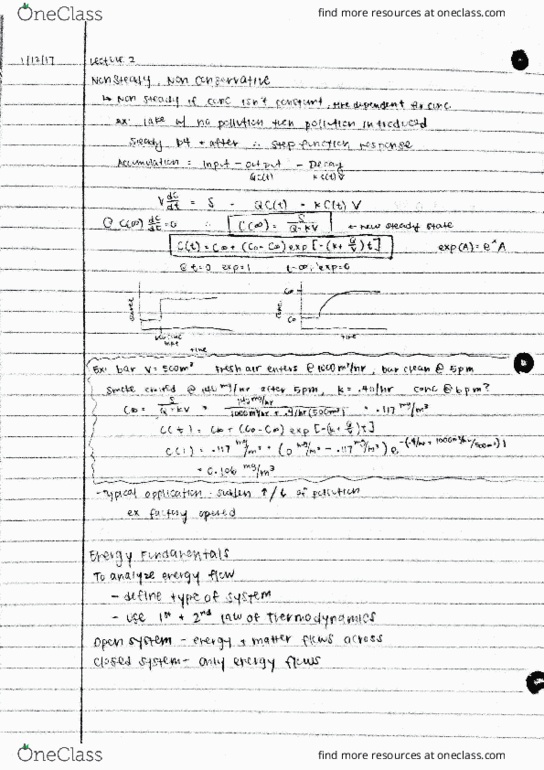 OneClass
find more resources at oneclass.com
1/12/17 Lecture 2
Nonsteady, Non conservative
↳ Non steady if conc isn't constant, time dependent conc
ex: lake w/ no pollution then pollution introduced
steady b4 + after ∴ step function response
Accumulation = Input - output - Decay
QC(t) KC(t)V
V dc/dt = S - QC(t) - KC(t) V
@ C(∞) dc/dt = 0 ∴ C(∞) = S/Q+KV ← new steady state
C(t) = C∞ + (C0 - C∞) exp [-(k + Q/V) t] exp(A) = e^A
@ t=0 exp=1 t=∞, exp=0
C∞
conc.
C0
time
time
Ex: bar V = 500m³ Fresh air enters @ 1000 m³/hr, bar clean @ 5pm
Smoke emitted @ 140 mg/hr after 5pm, k = .40/hr conc @ 6pm?
C∞ = S/Q+KV = 140 mg/hr / 1000m³/hr + .4/hr (500m³) = .117 mg/m³
C(t) = C∞ + (C0 - C∞) exp [-(k + Q/V) t]
C(1) = .117 mg/m³ + (0 mg/m³ - .117 mg/m³) e^-(.4/hr + 1000m³/hr/500m³) 1
= 0.106 mg/m³
- Typical application: sudden ↑/↓ of pollution
ex factory opened
Energy Fundamentals
To analyze energy flow
- define type of system
- use 1st + 2nd law of thermodynamics
Open system - energy + matter flows across
Closed system - only energy flows
OneClass
find more resources at oneclass.com